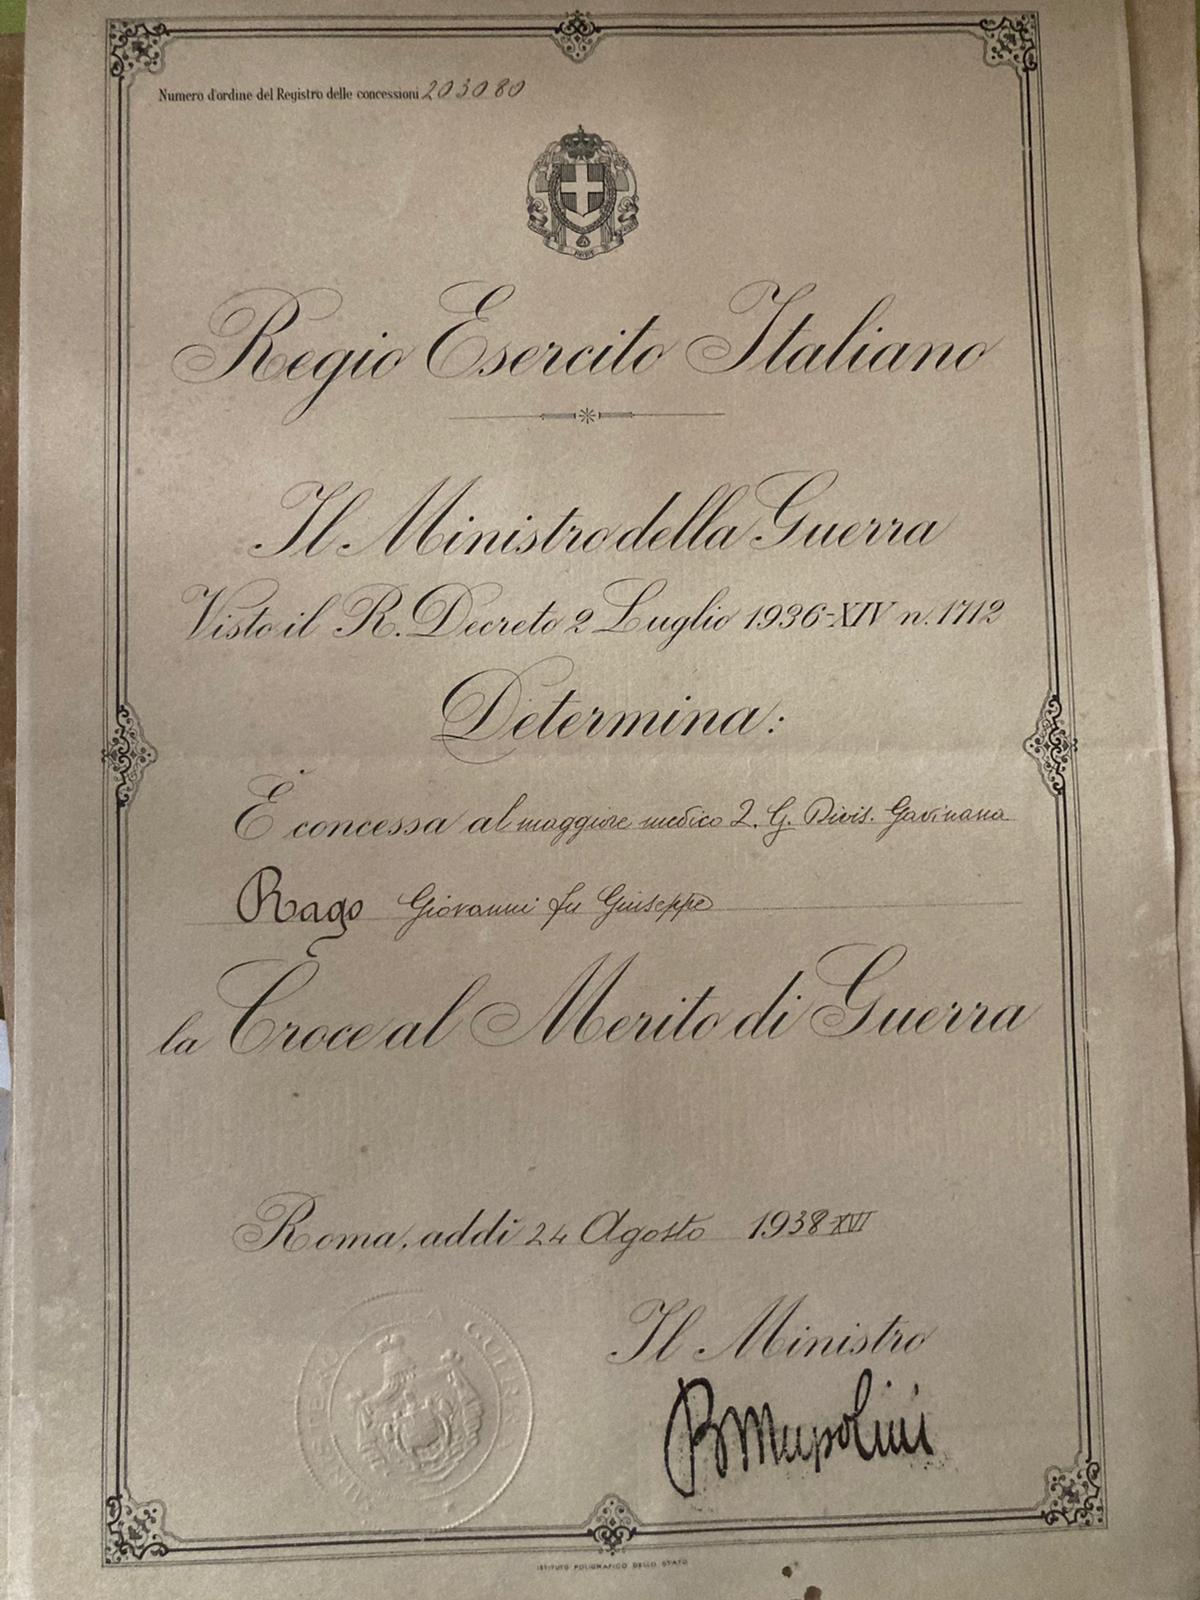 Numero d'ordine del Registro delle concessioni 203080
FERT
Regio Esercito Italiano
Il Ministro della Guerra
Visto il R. Decreto 2 Luglio 1936-XIV n. 1712
Determina:
È concessa al maggiore medico 2. G. Divis. Gavinana
Rago Giovanni fu Giuseppe
la Croce al Merito di Guerra
Roma, addì 24 Agosto 1938 XVI
Il Ministro
BMussolini
ISTITUTO POLIGRAFICO DELLO STATO